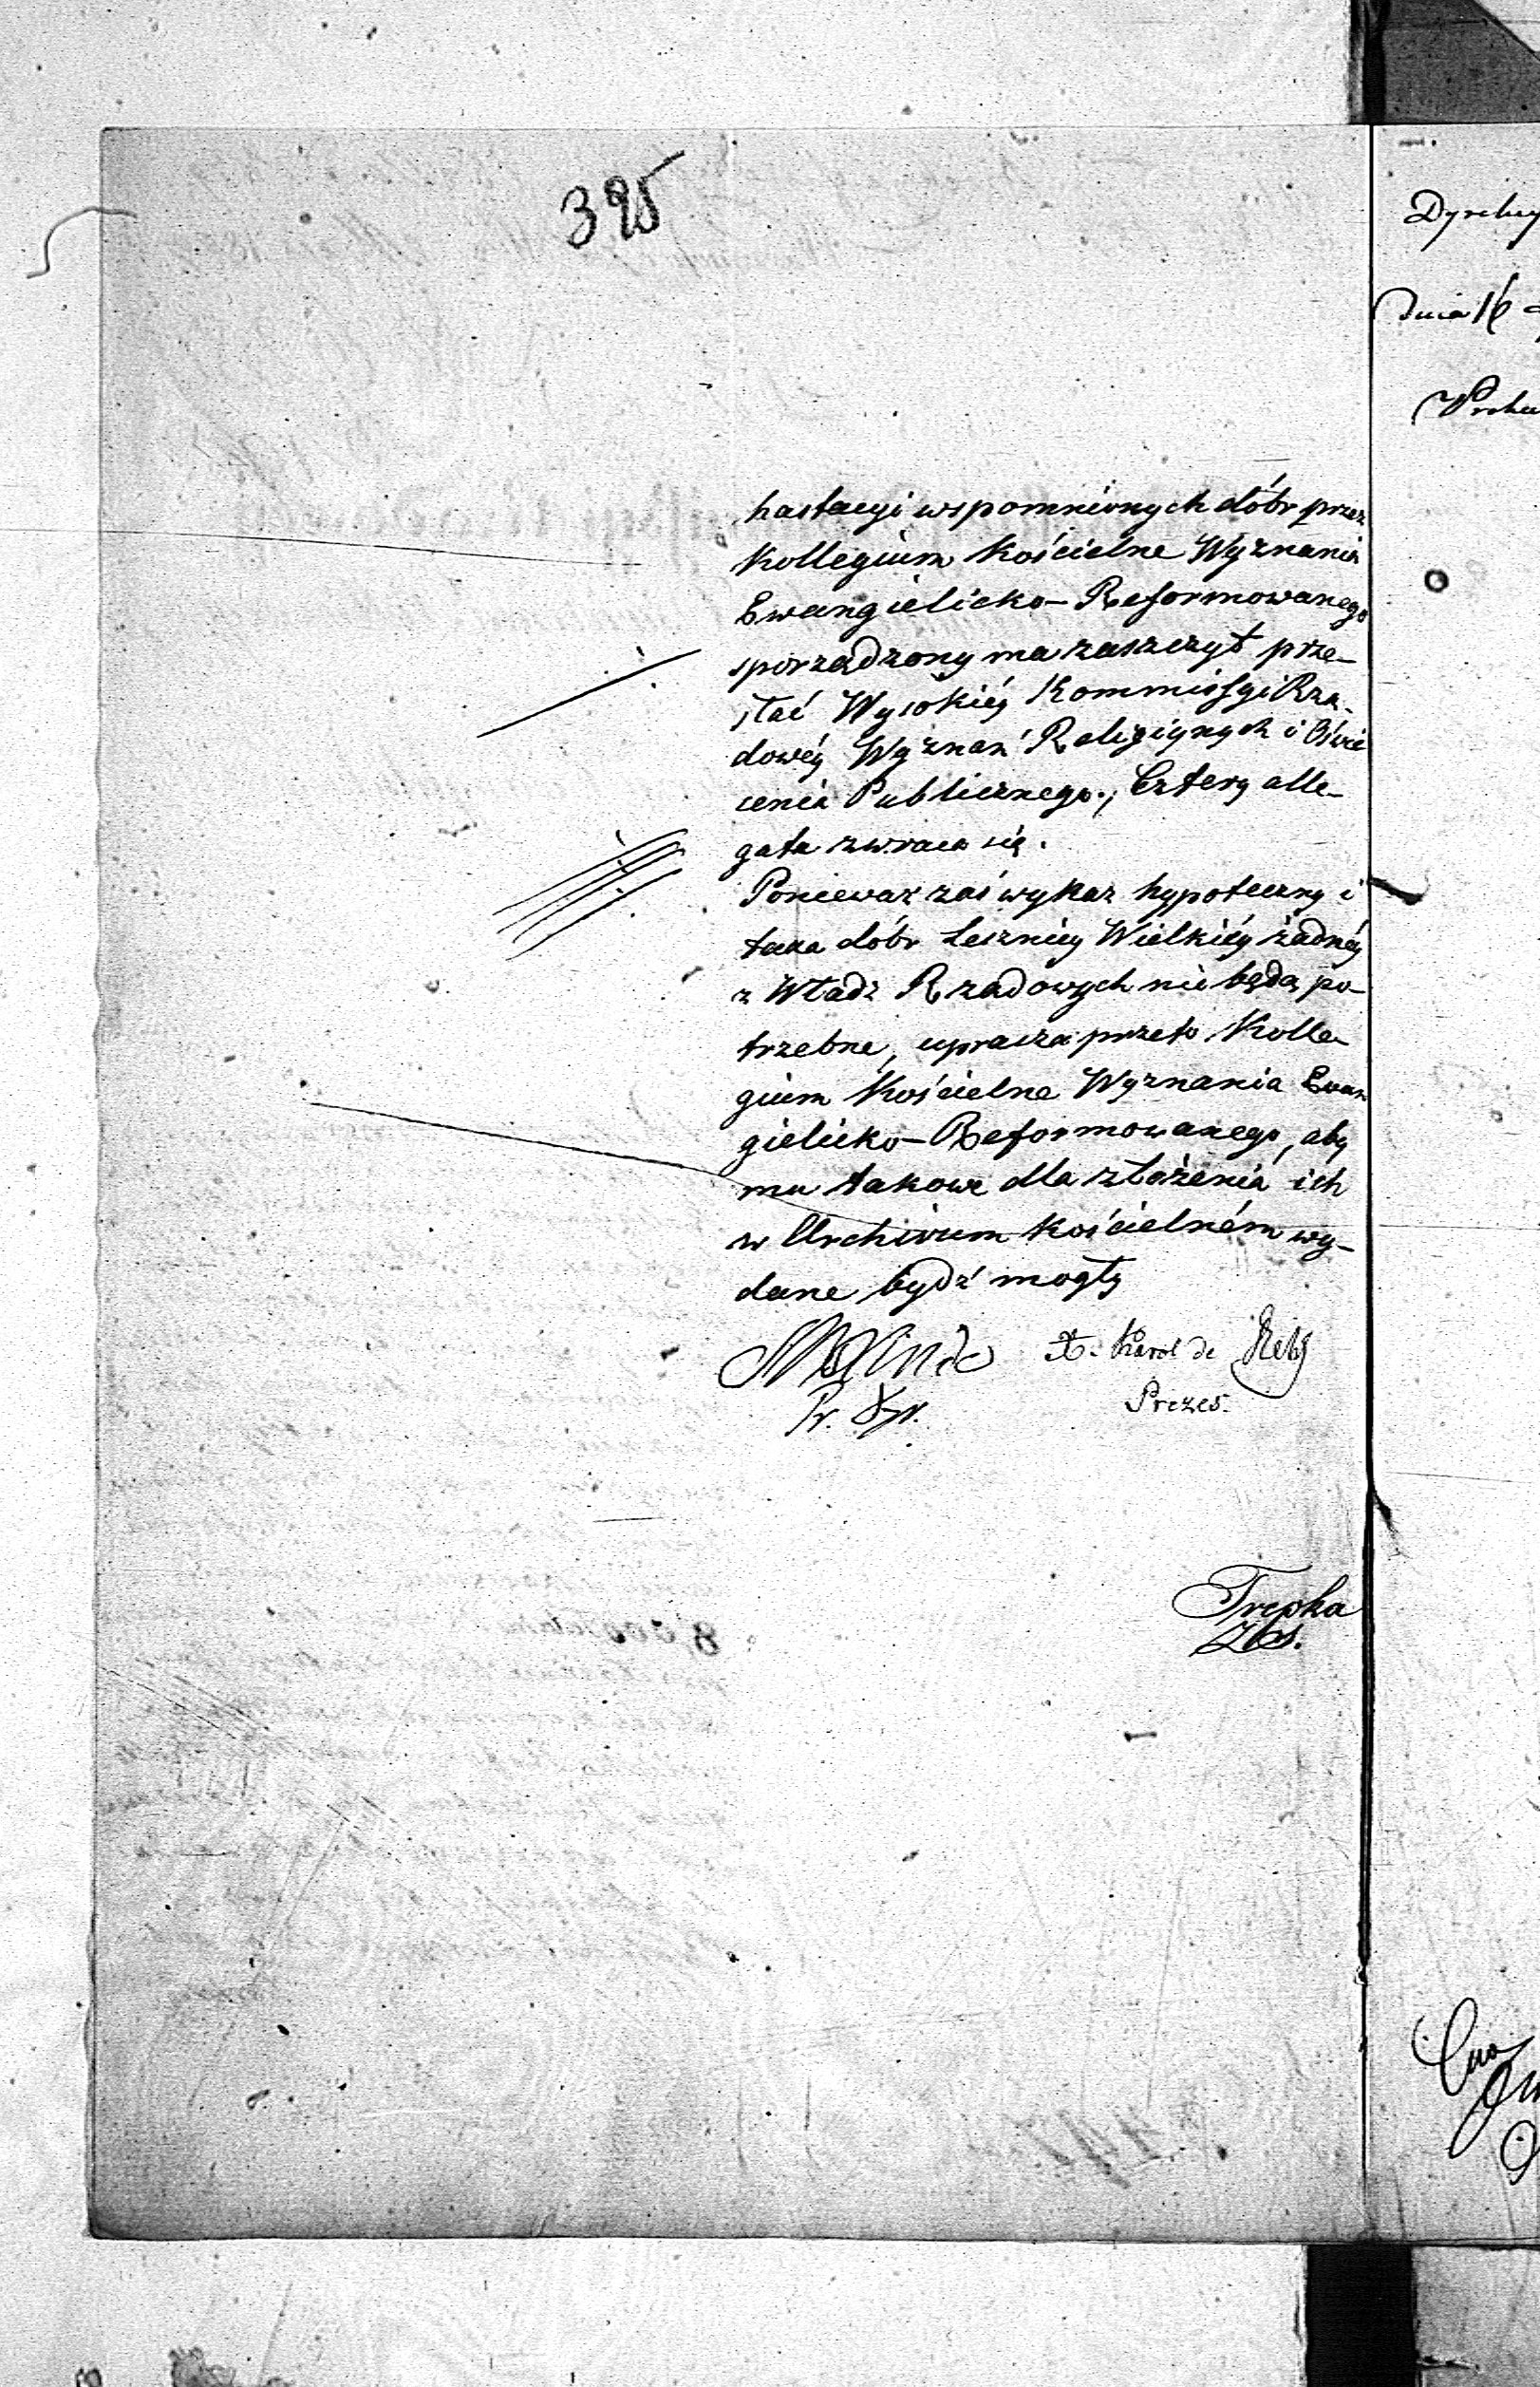 395
hastacyi wspomnionych dóbr przez
Kollegium Kościelne Wyznania
Ewangielicko-Reformowanego
sporządzony ma zaszczyt prze-
słać Wysokiéy Kommissyi Rzą-
dowéy Wyznań Religiynych i Oświe
cenia Publicznego., Cztery alle-
gata zwraca się.
Ponieważ zaś wykaz hypoteczny i
taxa dóbr Leszniey Wielkiéy żadnéy
z Władz Rządowych nie będą po-
trzebne, uprasza przeto Kolle-
gium Kościelne Wyznania Ewan
gielicko-Reformowanego, aby
mu takowe dla złożenia ich
w Archivum Kościelném wy-
dane bydź mogły
X. Karol de
Pr. Dyr.
Prezes.
Trepka
Dnia 16